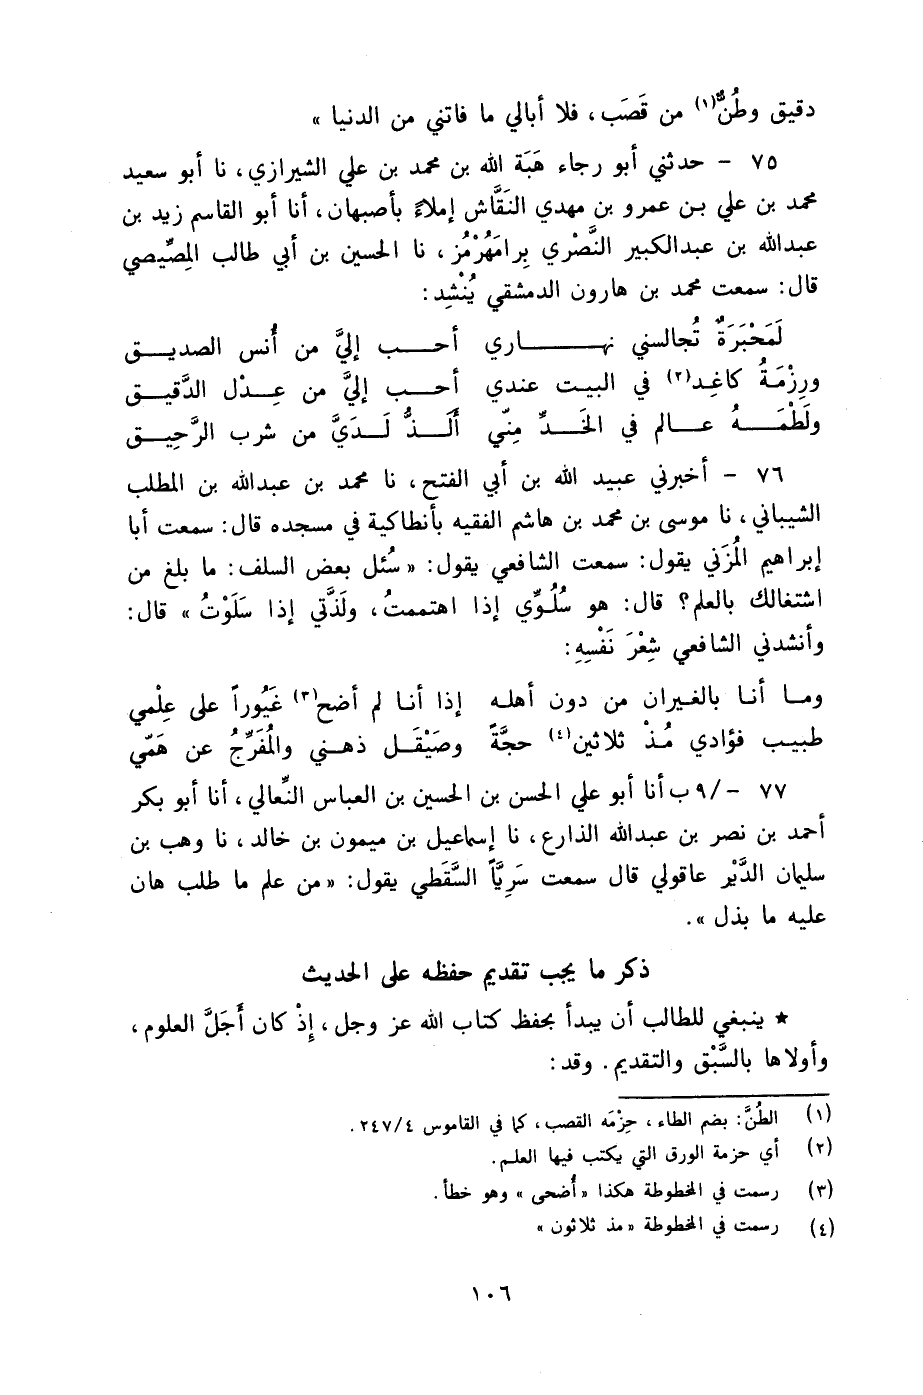 دقيق وطُنٌّ(١) من قَصَب، فلا أبالي ما فاتني من الدنيا »
٧٥ – حدثني أبو رجاء هَبَة الله بن محمد بن علي الشيرازي، نا أبو سعيد
محمد بن علي بن عمرو بن مهدي النَقَّاش إملاءً بأصبهان، أنا أبو القاسم زيد بن
عبدالله بن عبدالكبير النَّصْري بِرامَهُرْمُز، نا الحسين بن أبي طالب المِصِّيصي
قال: سمعت محمد بن هارون الدمشقي يُنْشِد:
لَمَحْبَرَةٌ تُجالسني نهـاري أحـب إليَّ من أُنس الصديـق
ورِزْمَةُ كاغِد(٢) في البيت عندي أحـب إليَّ من عِـدْل الدَّقيـق
ولَطْمَـةُ عـالم في الخَـدِّ مِنّي أَلَـذُّ لَـدَيَّ من شرب الرَّحِيـق
٧٦ – أخبرني عبيد الله بن أبي الفتح، نا محمد بن عبدالله بن المطلب
الشيباني، نا موسى بن محمد بن هاشم الفقيه بأنطاكية في مسجده قال: سمعت أبا
إبراهيم المُزَني يقول: سمعت الشافعي يقول: « سُئل بعض السلف: ما بلغ من
اشتغالك بالعلم؟ قال: هو سُلُوِّي إذا اهتممتُ، ولَذَّتي إذا سَلَوْتُ » قال:
وأنشدني الشافعي شِعْرَ نَفْسِهِ:
ومـا أنـا بالغيران من دون أهلـه إذا أنـا لم أضح(٣) غَيُوراً على عِلْمي
طبيب فؤادي مُـذْ ثلاثين(٤) حجَّةً وصَيْقَـل ذهـني والمُفَرِّجُ عن هَمّي
٧٧ –/٩ب أنا أبو علي الحسن بن الحسين بن العباس النِّعالي، أنا أبو بكر
أحمد بن نصر بن عبدالله الذارع، نا إسماعيل بن ميمون بن خالد، نا وهب بن
سليمان الدَّيْر عاقولي قال سمعت سَرِيَّاً السَّقَطي يقول: « من علم ما طلب هان
عليه ما بذل ».
ذكر ما يجب تقديم حفظه على الحديث
★ ينبغي للطالب أن يبدأ بحفظ كتاب الله عز وجل، إِذْ كان أَجَلَّ العلوم،
وأولاها بالسَّبْق والتقديم. وقد:
(١) الطُنَّ: بضم الطاء، حِزْمَه القصب، كما في القاموس ٢٤٧/٤.
(٢) أي حزمة الورق التي يكتب فيها العلم.
(٣) رسمت في المخطوطة هكذا « أُضحى » وهو خطأ.
(٤) رسمت في المخطوطة « مذ ثلاثون »
١٠٦